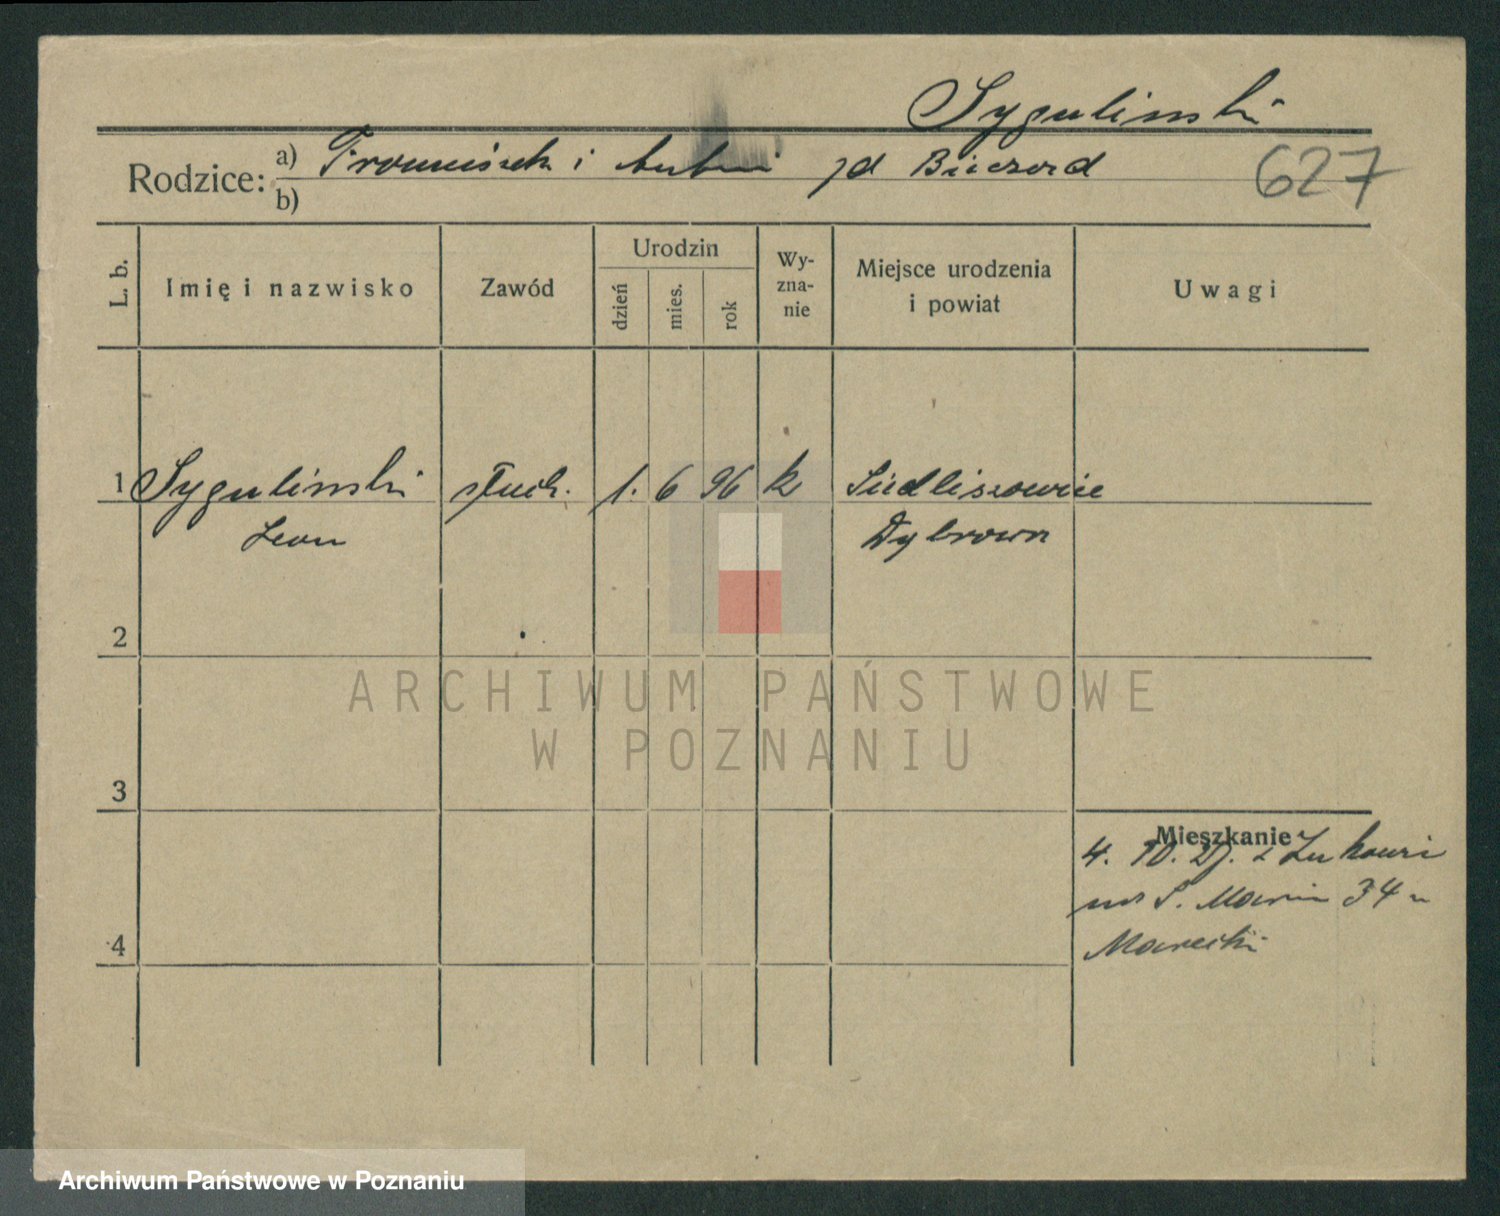 Sygulinski
Rodzice: a) Franciszek i zd
627
b)
L. b.
Imię i nazwisko
Zawód
Urodzin
dzień
mies.
rok
Wy-
zna-
nie
Miejsce urodzenia
i powiat
Uwagi
1 Sygulinski słuch. 1. 6 96 k Siedliszowice
Leon Dąbrowa
2
ARCHIWUM PAŃSTWOWE
W POZNANIU
3
Mieszkanie
4. 10. z
S. 34
4
Archiwum Państwowe w Poznaniu